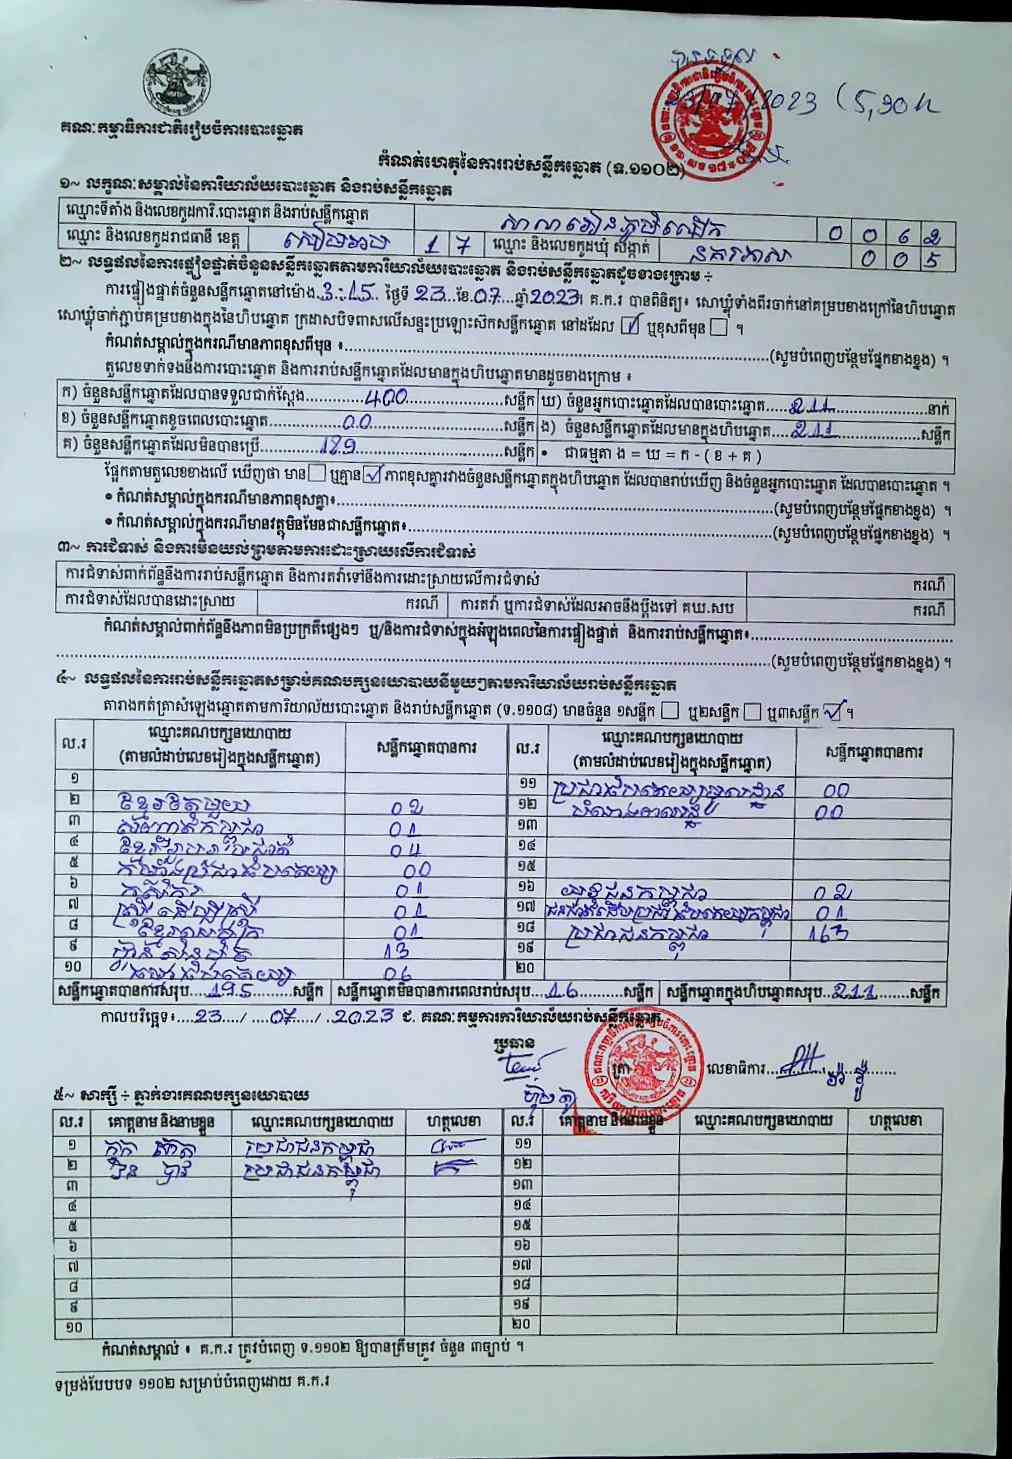 បានទទួល
23/07/2023 (5,30h
គណៈកម្មាធិការជាតិរៀបចំការបោះឆ្នោត
កំណត់ហេតុនៃការរាប់សន្លឹកឆ្នោត (ទ.១១០២)
១~ លក្ខណៈសម្គាល់នៃការិយាល័យបោះឆ្នោត និងរាប់សន្លឹកឆ្នោត
ឈ្មោះទីតាំង និងលេខកូដការិ.បោះឆ្នោត និងរាប់សន្លឹកឆ្នោត សាលារៀនភូមិ 0 0 6 2
ឈ្មោះ និងលេខកូដរាជធានី ខេត្ត សៀមរាប 1 7 ឈ្មោះ និងលេខកូដឃុំ សង្កាត់ 0 0 5
២~ លទ្ធផលនៃការផ្ទៀងផ្ទាត់ចំនួនសន្លឹកឆ្នោតតាមការិយាល័យបោះឆ្នោត និងរាប់សន្លឹកឆ្នោតដូចខាងក្រោម ÷
ការផ្ទៀងផ្ទាត់ចំនួនសន្លឹកឆ្នោតនៅម៉ោង 3:15 ថ្ងៃទី 23 ខែ 07 ឆ្នាំ 2023។ គ.ក.រ បានពិនិត្យ៖ សោឃ្លុំទាំងពីរចាក់នៅគម្របខាងក្រៅនៃហិបឆ្នោត
សោឃ្លុំចាក់ភ្ជាប់គម្របខាងក្នុងនៃហិបឆ្នោត ក្រដាសបិទពាសលើសន្ទះប្រឡោះស៊កសន្លឹកឆ្នោត នៅដដែល ☑ ឬខុសពីមុន ☐ ។
កំណត់សម្គាល់ក្នុងករណីមានភាពខុសពីមុន ៖ (សូមបំពេញបន្ថែមផ្នែកខាងខ្នង) ។
តួលេខទាក់ទងនឹងការបោះឆ្នោត និងការរាប់សន្លឹកឆ្នោតដែលមានក្នុងហិបឆ្នោតមានដូចខាងក្រោម ៖
ក) ចំនួនសន្លឹកឆ្នោតដែលបានទទួលជាក់ស្តែង 400 សន្លឹក ឃ) ចំនួនអ្នកបោះឆ្នោតដែលបានបោះឆ្នោត 211 នាក់
ខ) ចំនួនសន្លឹកឆ្នោតខូចពេលបោះឆ្នោត 00 សន្លឹក ង) ចំនួនសន្លឹកឆ្នោតដែលមានក្នុងហិបឆ្នោត 211 សន្លឹក
គ) ចំនួនសន្លឹកឆ្នោតដែលមិនបានប្រើ 189 សន្លឹក • ជាធម្មតា ង = ឃ = ក - ( ខ + គ )
ផ្អែកតាមតួលេខខាងលើ ឃើញថា មាន ☐ ឬគ្មាន ☑ ភាពខុសគ្នារវាងចំនួនសន្លឹកឆ្នោតក្នុងហិបឆ្នោត ដែលបានរាប់ឃើញ និងចំនួនអ្នកបោះឆ្នោត ដែលបានបោះឆ្នោត ។
• កំណត់សម្គាល់ក្នុងករណីមានភាពខុសគ្នា៖ (សូមបំពេញបន្ថែមផ្នែកខាងខ្នង) ។
• កំណត់សម្គាល់ក្នុងករណីមានវត្ថុមិនមែនជាសន្លឹកឆ្នោត៖ (សូមបំពេញបន្ថែមផ្នែកខាងខ្នង) ។
៣~ ការជំទាស់ និងការមិនយល់ព្រមតាមការដោះស្រាយលើការជំទាស់
ការជំទាស់ពាក់ព័ន្ធនឹងការរាប់សន្លឹកឆ្នោត និងការតវ៉ាទៅនឹងការដោះស្រាយលើការជំទាស់ ករណី
ការជំទាស់ដែលបានដោះស្រាយ ករណី ការតវ៉ា ឬការជំទាស់ដែលអាចនឹងប្តឹងទៅ គឃ.សប ករណី
កំណត់សម្គាល់ពាក់ព័ន្ធនឹងភាពមិនប្រក្រតីផ្សេងៗ ឬ/និងការជំទាស់ក្នុងអំឡុងពេលនៃការផ្ទៀងផ្ទាត់ និងការរាប់សន្លឹកឆ្នោត៖
(សូមបំពេញបន្ថែមផ្នែកខាងខ្នង) ។
៤~ លទ្ធផលនៃការរាប់សន្លឹកឆ្នោតសម្រាប់គណបក្សនយោបាយនីមួយៗតាមការិយាល័យរាប់សន្លឹកឆ្នោត
តារាងកត់ត្រាសំឡេងឆ្នោតតាមការិយាល័យបោះឆ្នោត និងរាប់សន្លឹកឆ្នោត (ទ.១១០៨) មានចំនួន ១សន្លឹក ☐ ឬ២សន្លឹក ☐ ឬ៣សន្លឹក ☑ ។
ល.រ ឈ្មោះគណបក្សនយោបាយ (តាមលំដាប់លេខរៀងក្នុងសន្លឹកឆ្នោត) សន្លឹកឆ្នោតបានការ ល.រ ឈ្មោះគណបក្សនយោបាយ (តាមលំដាប់លេខរៀងក្នុងសន្លឹកឆ្នោត) សន្លឹកឆ្នោតបានការ
១ ១១ ប្រជាធិបតេយ្យមូលដ្ឋាន 00
២ ខ្មែររួបរួម 02 ១២ 00
៣ 01 ១៣
៤ 04 ១៤
៥ 00 ១៥
៦ កសិករ 01 ១៦ យុវជនកម្ពុជា 02
៧ ស្រ្តីដើម្បីស្ត្រី 01 ១៧ 01
៨ 01 ១៨ ប្រជាជនកម្ពុជា 163
៩ ហ្វ៊ុនស៊ិនប៉ិច 13 ១៩
១០ 06 ២០
សន្លឹកឆ្នោតបានការសរុប 195 សន្លឹក សន្លឹកឆ្នោតមិនបានការពេលរាប់សរុប 16 សន្លឹក សន្លឹកឆ្នោតក្នុងហិបឆ្នោតសរុប 211 សន្លឹក
កាលបរិច្ឆេទ៖ 23 / 07 / 2023 ជ. គណៈកម្មការការិយាល័យរាប់សន្លឹកឆ្នោត
ប្រធាន ត្រា លេខាធិការ
៥~ សាក្សី ÷ ភ្នាក់ងារគណបក្សនយោបាយ
ល.រ គោត្តនាម និងនាមខ្លួន ឈ្មោះគណបក្សនយោបាយ ហត្ថលេខា ល.រ គោត្តនាម និងនាមខ្លួន ឈ្មោះគណបក្សនយោបាយ ហត្ថលេខា
១ ប្រជាជនកម្ពុជា ១១
២ ប្រជាជនកម្ពុជា ១២
៣ ១៣
៤ ១៤
៥ ១៥
៦ ១៦
៧ ១៧
៨ ១៨
៩ ១៩
១០ ២០
កំណត់សម្គាល់ ៖ គ.ក.រ ត្រូវបំពេញ ទ.១១០២ ឱ្យបានត្រឹមត្រូវ ចំនួន ៣ច្បាប់ ។
ទម្រង់បែបបទ ១១០២ សម្រាប់បំពេញដោយ គ.ក.រ